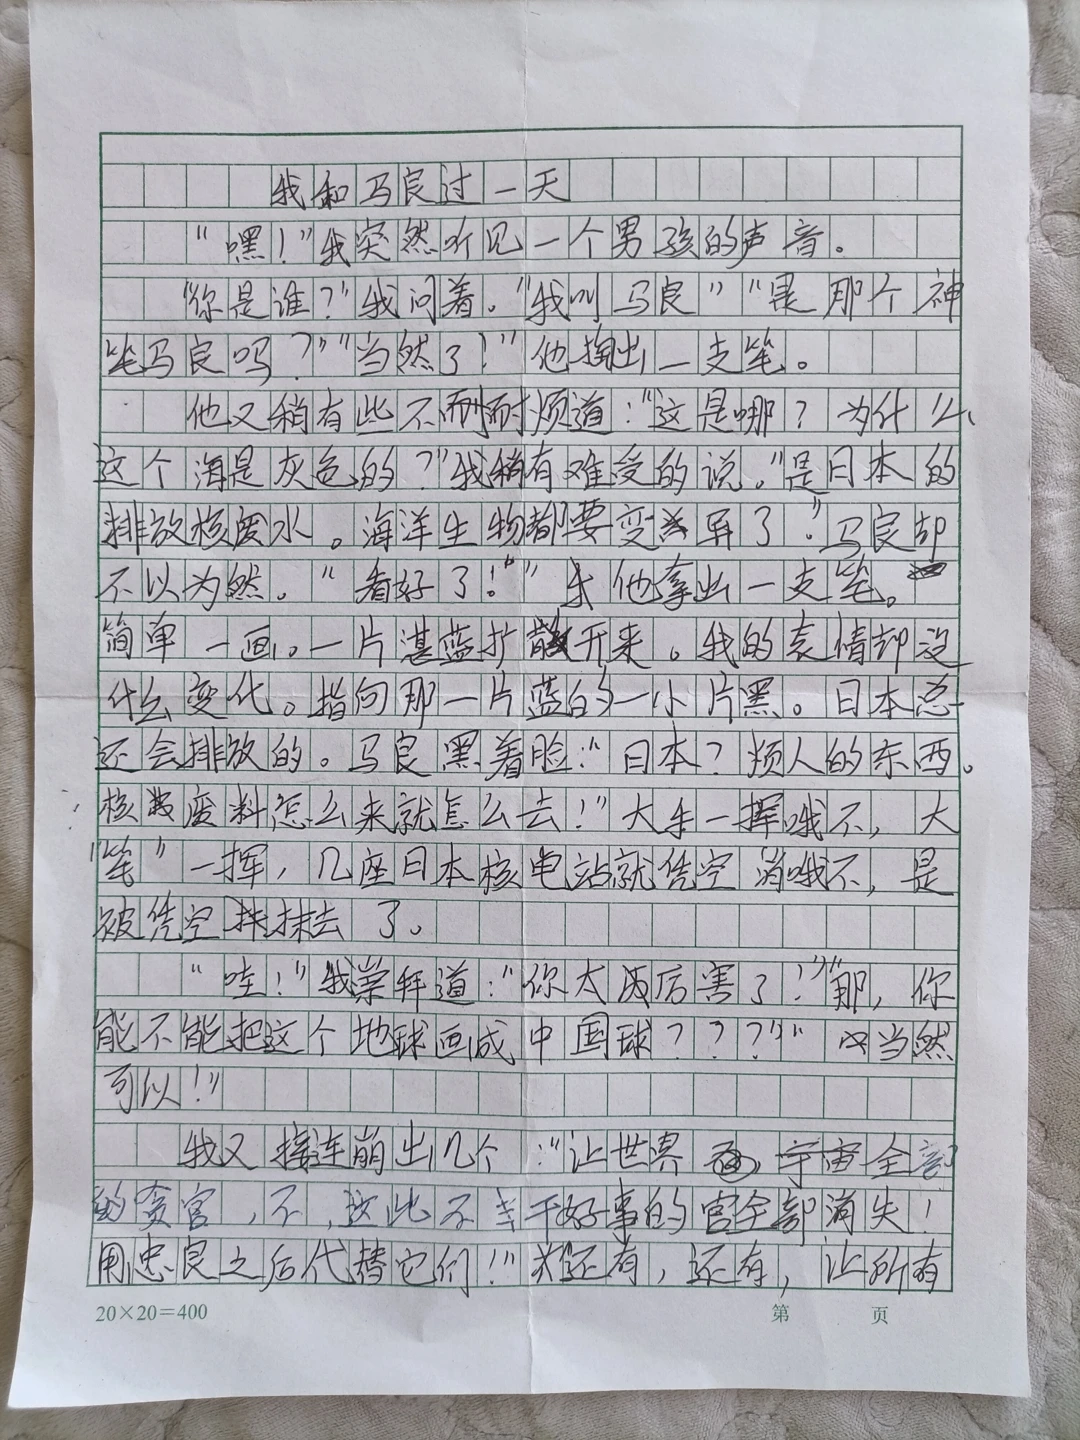 我和马良过一天
“嘿！”我突然听见一个男孩的声音。
“你是谁？”我问着。“我叫马良”“是那个神
笔马良吗？”“当然了！”他掏出一支笔。
他又稍有些不耐烦道：“这是哪？为什么
这个海是灰色的？”我稍有难受的说。“是日本的
排放核废水。海洋生物都要变异了.”马良却
不以为然。“看好了！”他拿出一支笔。
简单一画。一片湛蓝扩散开来。我的表情却没
什么变化。指向那一片蓝的一小片黑。日本总
还会排放的。马良黑着脸：“日本？烦人的东西。
核废料怎么来就怎么去！”大手一挥哦不，大
“笔”一挥，几座日本核电站就凭空消哦不，是
被凭空抹去了。
“哇！”我崇拜道：“你太厉害了！”“那，你
能不能把这个地球画成中国球？？？”“当然
可以！”
我又接连崩出几个：“让世界，宇宙全部
的贪官，不，这些不干好事的官全部消失！
用忠良之后代替它们！”“还有，还有，让所有
20×20=400 第 页